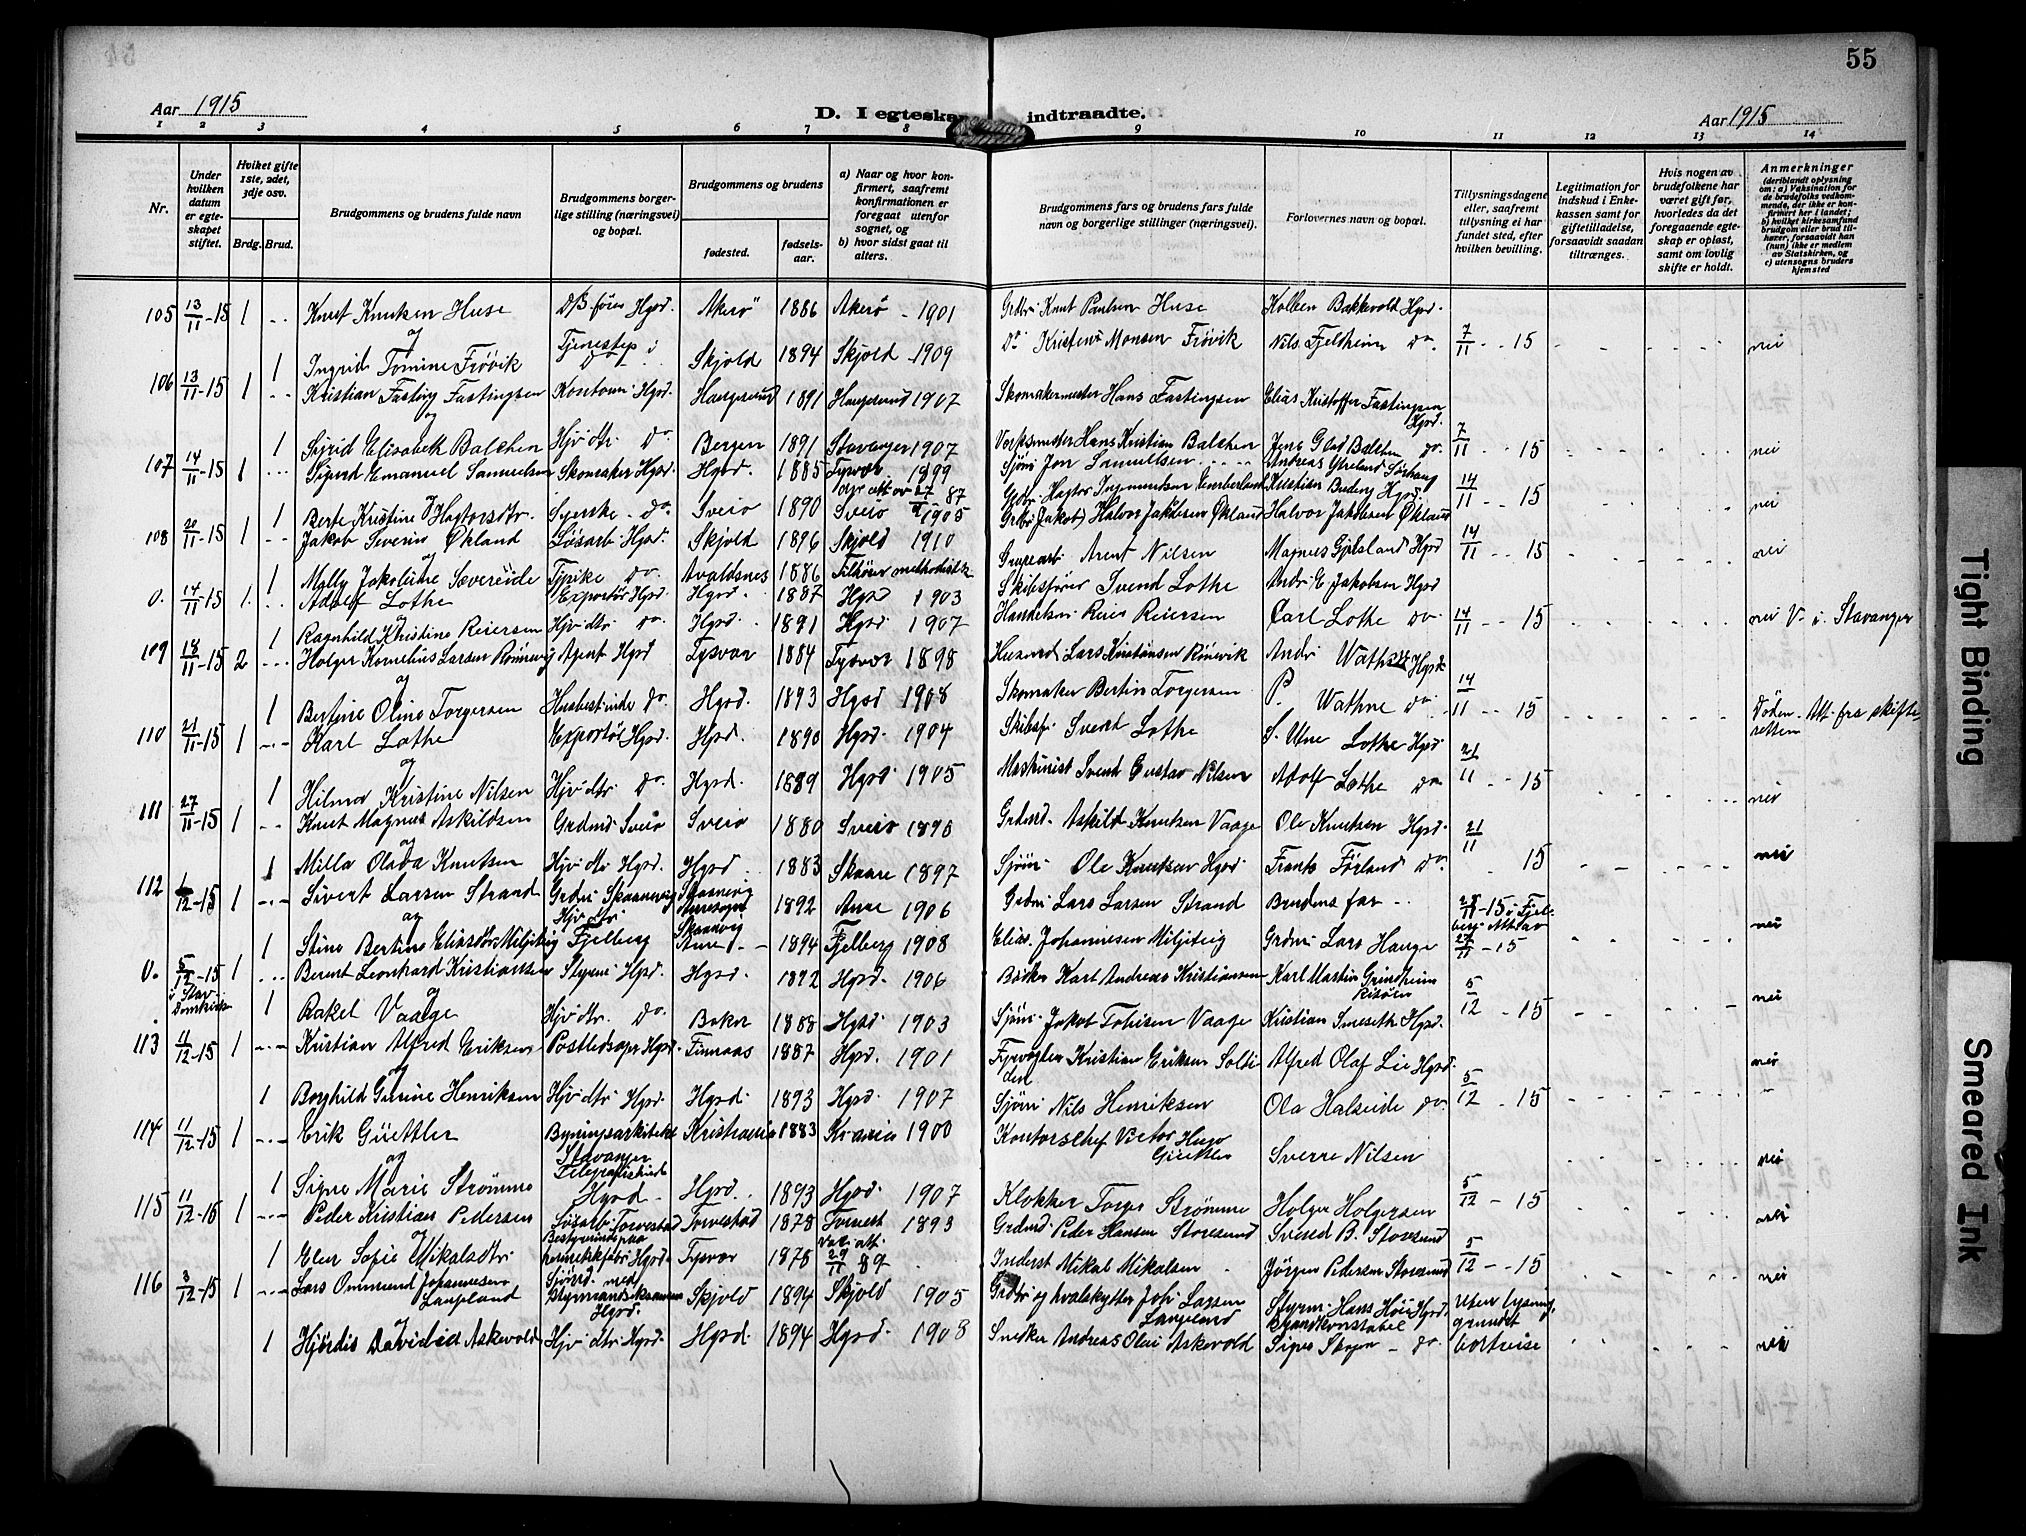 55
Aar 1915
D. I egteska indtraadte.
Aar 1915
1 2 3 4 5 6 7 8 9 10 11 12 13 14
Nr.
Under hvilken datum er egteskapet stiftet.
Hviket gifte 1ste, 2det, 3dje osv.
Brdg. Brud.
Brudgommens og brudens fulde navn
Brudgommens borgerlige stilling (næringsvei) og bopæl.
Brudgommens og brudens
fødested.
fødselsaar.
a) Naar og hvor konfirmert, saafremt konfirmationen er foregaat utenfor sognet, og
b) hvor sidst gaat til alters.
Brudgommens fars og brudens fars fulde navn og borgerlige stillinger (næringsvei).
Forlovernes navn og bopæl.
Tillysningsdagene eller, saafremt tillysning ei har fundet sted, efter hvilken bevilling.
Legitimation for indskud i Enkekassen samt for giftetilladelse, forsaavidt saadan tiltrænges.
Hvis nogen av brudefolkene har været gift før, hvorledes da det foregaaende egteskap er opløst, samt om lovlig skifte er holdt.
Anmerkninger
(deriblandt oplysning om: a) Vaksination for de brudefolks vedkommende, der ikke er konfirmert her i landet; b) hvilket kirkesamfund brudgom eller brud tilhører, forsaavidt han (hun) ikke er medlem av Statskirken, og c) utensogns bruders hjemsted
105 13/11-15 1 Knut Knutsen Huse D/B fører Hgsd. Akerø 1886 Akerø - 1901 Grdbr. Knut Paulsen Huse Kolben Bakkevold Hgsd.
og
1 Ingrid Tomine Frövik Tjenestep i Do Skjold 1894 Skjold - 1909 Do Kristens Monsen Frövik Nils Fjeldheim do. 7/11 - 15 nei
106 13/11-15 1 Kristian Fasting Fastingsen Kontorm. Hgsd. Haugesund 1891 Haugesund 1907 Skomakermester Hans Fastingsen Elias Kristoffer Fastingsen Hgsd.
og
1 Sigrid Elisabeth Balchen Hjv. dtr. Do. Bergen 1891 Stavanger 1907 Hans Kristian Balchen Jens Glad Balchen do. 7/11 - 15 nei
107 14/11-15 1 Sigurd Emanuel Samuelsen Skomaker Hgsd. Hgsd. 1885 Tysvær 1899 Sjöm. Jon Samuelsen Andreas
1 Berte Kristine Hagtorsdtr. Syerske - do. Sveio 1890 Sveio 1905 Gdbr. Hagtor Ingmundsen Kristian Hgsd. 14/11 - 15 nei
108 20/11-15 1 Jakob Severin Økland Løsarb. Hgsd. Skjold 1896 Skjold 1910 Grdbr. (Jakob) Halvor Jakobsen Økland Halvor Jakobsen Økland
og
1 Molly Jakobine Sævereide Tjpike do. Avaldsnes 1886 Tilhører methodistk. Arent Nilsen Magnus Hgsd 14/11 - 15 nei
0. 14/11-15 1 Adolf Lothe Exportør Hgsd. Hgsd. 1887 Hgsd 1903 Skibsfører Svend Lothe Andr. E. Jakobsen Hgsd
1 Ragnhild Kristine Reiersen Hjv. dtr. do. Hgsd. 1891 Hgsd 1907 Handelsm. Reier Reiersen Carl Lothe do. 14/11 - 15 nei V. i. Stavanger
109 18/11-15 2 Holger Kornelius Larsen Rönnevig Agent Hgsd Tysvær 1884 Tysvær 1898 Husmd. Lars Kristensen Rönevik Andr. Wathne Hgsd
og
1 Bertine Oline Torgersen Husbestinde do. Hgsd. 1893 Hgsd 1908 Skomaker Bertin Torgersen P. Wathne do. 14/11 - 15 Døden. Att. fra skifteretten
110 21/11-15 1 Karl Lothe Exportör Hgsd. Hgsd. 1890 Hgsd. 1904 Skibsf. Svend Lothe S. Utne Lothe Hgsd
og
1 Hilma Kristine Nilsen Hjv. dtr. do. Hgsd. 1889 Hgsd. 1905 Maskinist Svend Gustav Nilsen Adolf Lothe do. 21/11 - 15 nei
111 27/11-15 1 Knut Magnus Askildsen Grdmd. Sveio Sveio 1880 Sveio 1896 Grdmd. Askild Knutsen Vaage Ole Knutsen Hgsd.
og
1 Milla Olava Knutsen Hjv. dtr. Hgsd. Hgsd. 1883 Skaare 1897 Sjöm. Ole Knutsen Hgsd. Frants Förland do. 21/11 15 nei
112 1/12-15 1 Sivert Larsen Strand Grdm. Skaanevig Skaanevig Annesogn 1892 Anne 1906 Grdm. Lars Larsen Strand Brudens far 28/11-15 i Fjelberg Att.
og
1 Stine Bertine Eliasdtr. Miljeteig Hjv. dtr. Fjelberg Skaanevig 1894 Fjelberg 1908 Elias Johannesen Miljeteig Grdm. Lars Hauge 27/11 - 15 nei
0. 5/12-15 i Stav. Domkirke 1 Bernt Leonhard Kristiansen Styrm. Hgsd. Hgsd. 1892 Hgsd. 1906 Bødker Karl Andreas Kristiansen Karl Martin Grindheim Risøen
og
1 Rakel Vaage Hjv. dtr. do. Bokn 1888 Hgsd. 1903 Sjöm. Jakob Tobisen Vaage Kristian Smeseth Hgsd. 5/12 - 15 nei
113 11/12-15 1 Kristian Alfred Eriksen Hgsd. Finnaas 1887 Hgsd. 1901 Fyrvogter Kristian Eriksen Alfred Olaf Lie Hgsd. nei
og
1 Borghild Gurine Henriksen Hjv. dtr. Hgsd. Hgsd. 1893 Hgsd. 1907 Sjöm. Nils Henriksen Ola Halseide do. 5/12 - 15
114 11/12-15 1 Erik Güettler Bygningsarkitekt Stavanger Kristiania 1883 Kr.ania 1900 Kontorschef Victor Hugo Güettler Sverre Nilsen
og
1 Signe Marie Strömme Telegrafistinde Hgsd. Hgsd. 1893 Hgsd. 1907 Klokker Torger Strömme Holger Holgersen 5/12 - 15 nei
115 11/12-15 1 Peder Kristian Pedersen Løsarb. Torvestad Torvestad 1878 Torvest 1893 Grdmd. Peder Hansen Storesund Svend B. Storesund
og
1 Elen Sofie Mikalsdtr. Bestyrerinde Hgsd. Tysvær 1875 Vac. att. 29/11 89 Inderst Mikal Mikalsen Jörgen Pedersen Storesund 5/12 - 15 nei
116 3/12-15 1 Lars Ommund Johannesen Langeland Sjömd. med styrmandseksamen Hgsd. Skjold 1894 Skjold 1905 Grdbr. og hvalskytter Joh. Larsen Langeland Styrm. Hans Höie Hgsd. Uten lysning, grundet
og
1 Hjördis Davidsen Askevold Hjv. dtr. Hgsd. Hgsd. 1894 Hgsd. 1908 Snedker Andreas Olai Askevold do. bortreise nei
Tight Binding
Smeared Ink